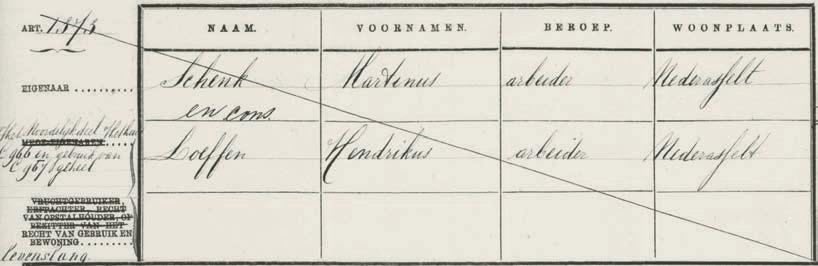 ART. 1373
NAAM. VOORNAMEN. BEROEP. WOONPLAATS.
EIGENAAR Schenk Martinus arbeider Nederasselt
en cons.
Het Noordelijk deel
MEDE-EIGENAREN.
C 966 en gebruik van Loeffen Hendrikus arbeider Nederasselt
C 967 geheel
VRUCHTGEBRUIKER,
ERFPACHTER, RECHT
VAN OPSTALHOUDER, OF
BEZITTER VAN HET
RECHT VAN GEBRUIK EN
BEWONING.
levenslang